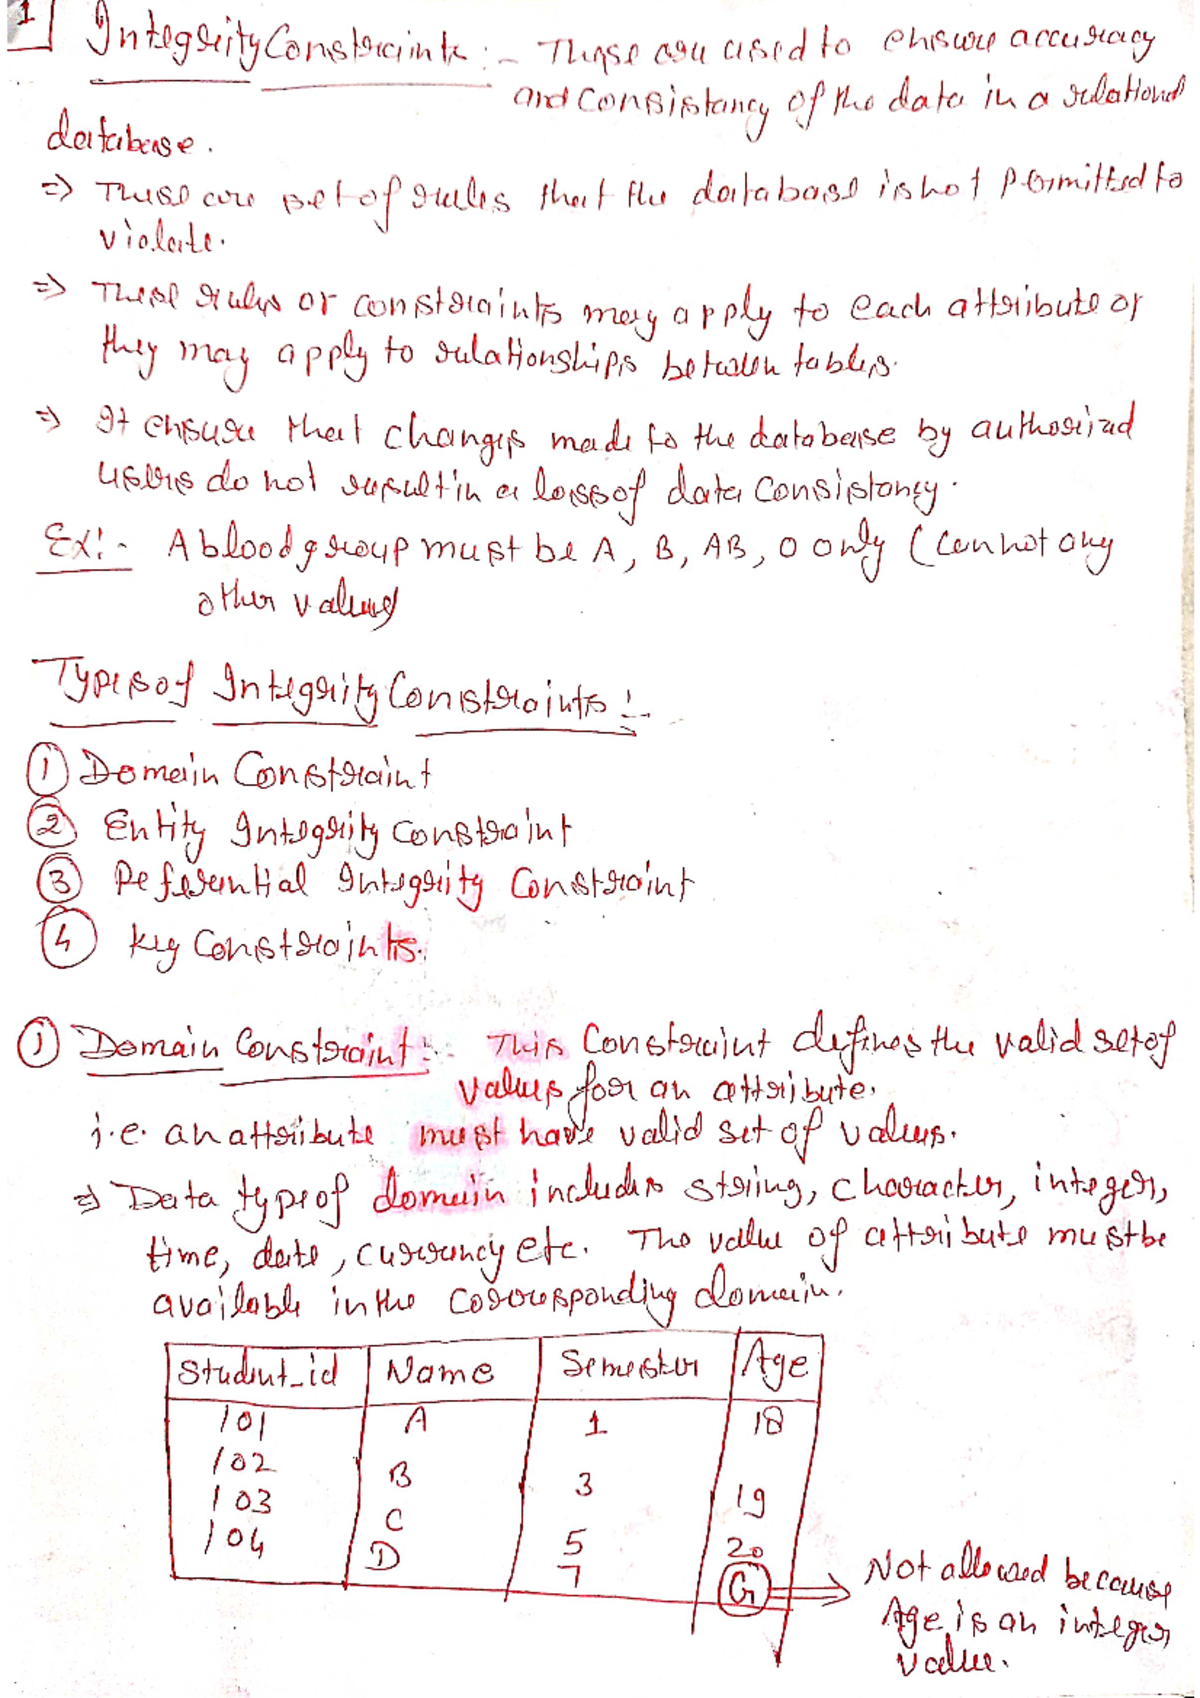 1
Integrity Constraints :- These are used to ensure accuracy
and consistancy of the data in a relational
database.
=> These are set of rules that the database is not permitted to
violate.
=> These rules or constraints may apply to each attribute or
they may apply to relationships between tables.
=> It ensure that changes made to the database by authorized
users do not result in a loss of data consistancy.
Ex:- A blood group must be A, B, AB, O only (cannot any
other values)
Types of Integrity Constraints :-
① Domain Constraint
② Entity Integrity Constraint
③ Referential Integrity Constraint
④ Key Constraints.
① Domain Constraint :- This Constraint defines the valid set of
values for an attribute.
i.e. an attribute must have valid set of values.
=> Data type of domain includes string, character, integer,
time, date, currency etc. The value of attribute must be
available in the corresponding domain.
Student_id Name Semester Age
101 A 1 18
102 B 3 19
103 C 5 20
104 D 7 G => Not allowed because
Age is an integer
value.